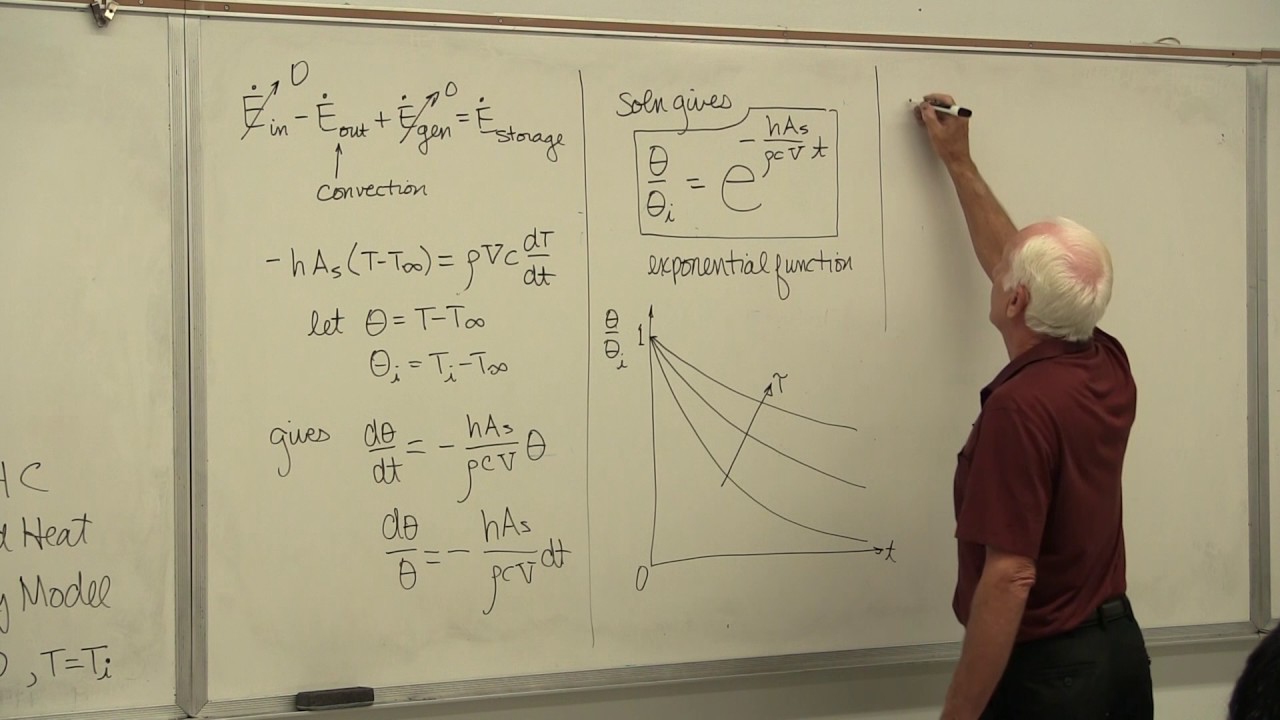 HC
Heat
Model
, T=Ti
Ėin⁰ - Ėout + Ėgen⁰ = Ėstorage
convection
-hAs(T-T∞) = ρVc dT/dt
let θ = T-T∞
θi = Ti-T∞
gives dθ/dt = - hAs/ρcV θ
dθ/θ = - hAs/ρcV dt
Soln gives
θ/θi = e^(- hAs/ρcV t)
exponential function
θ/θi
1
τ
0
t